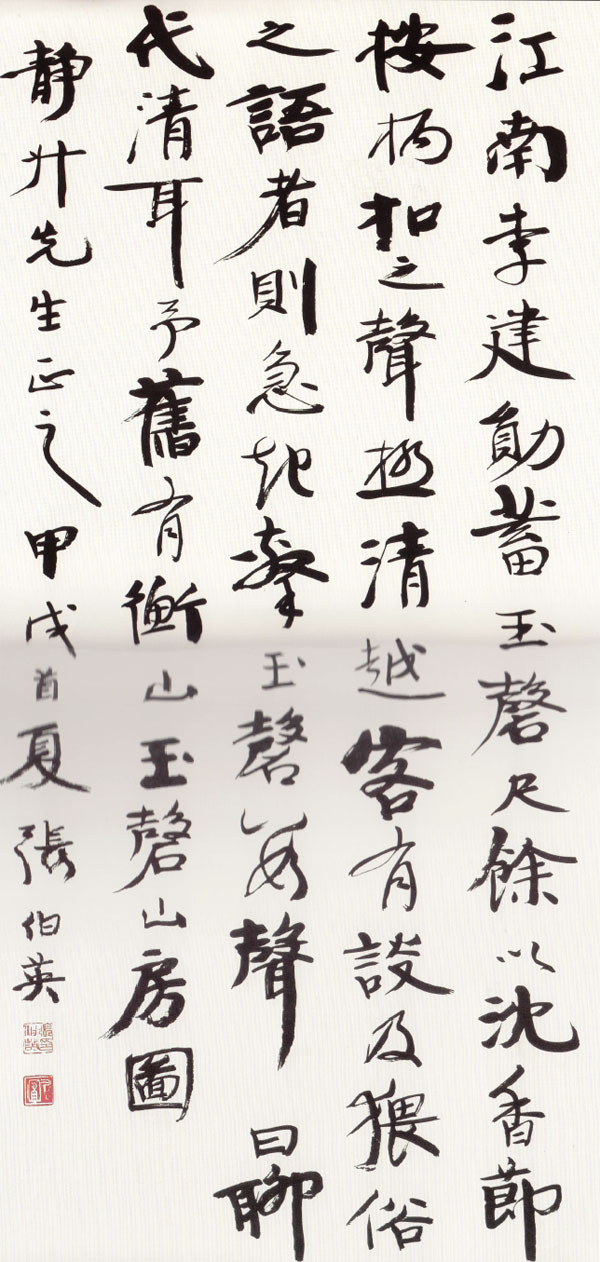 江南李建勛蓄玉磬尺餘以沈香節
按柄扣之聲極清越客有談及猥俗
之語者則急起擊玉磬數聲曰聊
代清耳予舊有衡山玉磬山房圖
靜升先生正之甲戌首夏張伯英